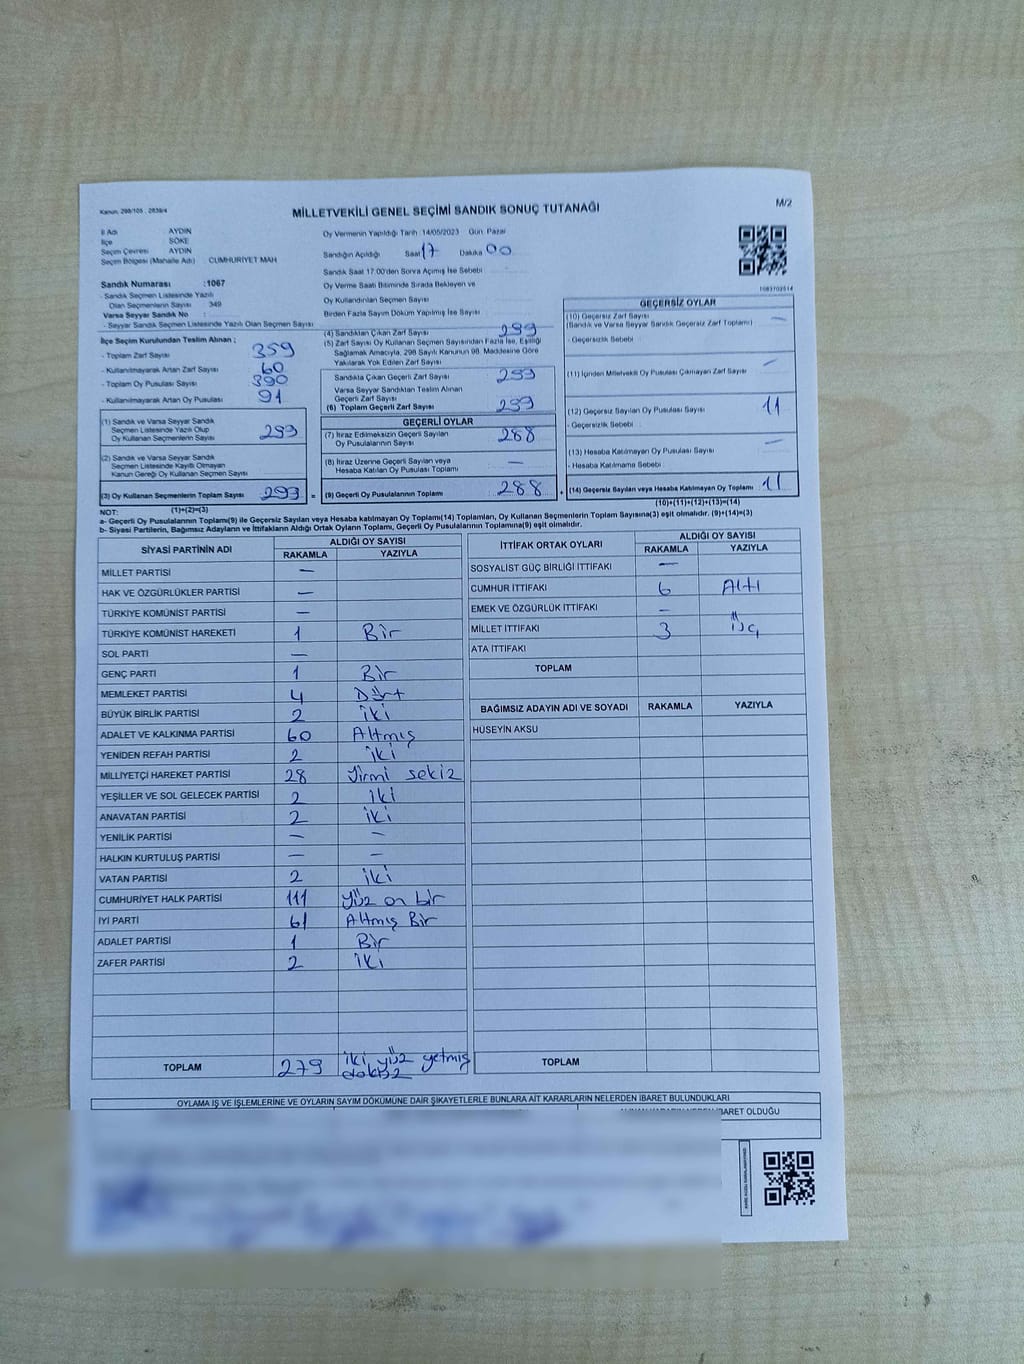 Kanun, 298/105 , 2839/4
MİLLETVEKİLİ GENEL SEÇİMİ SANDIK SONUÇ TUTANAĞI
M/2
İl Adı AYDIN
İlçe SÖKE
Seçim Çevresi AYDIN
Seçim Bölgesi (Mahalle Adı) CUMHURİYET MAH
Sandık Numarası :1067
- Sandık Seçmen Listesinde Yazılı
Olan Seçmenlerin Sayısı 349
Varsa Seyyar Sandık No :
- Seyyar Sandık Seçmen Listesinde Yazılı Olan Seçmen Sayısı
İlçe Seçim Kurulundan Teslim Alınan ;
- Toplam Zarf Sayısı 359
- Kullanılmayarak Artan Zarf Sayısı 60
- Toplam Oy Pusulası Sayısı 390
- Kullanılmayarak Artan Oy Pusulası 91
(1) Sandık ve Varsa Seyyar Sandık
Seçmen Listesinde Yazılı Olup
Oy Kullanan Seçmenlerin Sayısı 299
(2) Sandık ve Varsa Seyyar Sandık
Seçmen Listesinde Kayıtlı Olmayan
Kanun Gereği Oy Kullanan Seçmen Sayısı
(3) Oy Kullanan Seçmenlerin Toplam Sayısı 299 =
(1)+(2)=(3)
Oy Vermenin Yapıldığı Tarih 14/05/2023 Gün Pazar
Sandığın Açıldığı Saat 17 Dakika 00
Sandık Saat 17:00'den Sonra Açılmış İse Sebebi
Oy Verme Saati Bitiminde Sırada Bekleyen ve
Oy Kullandırılan Seçmen Sayısı
Birden Fazla Sayım Döküm Yapılmış İse Sayısı
(4) Sandıktan Çıkan Zarf Sayısı 299
(5) Zarf Sayısı Oy Kullanan Seçmen Sayısından Fazla İse, Eşitliği
Sağlamak Amacıyla, 298 Sayılı Kanunun 98. Maddesine Göre
Yakılarak Yok Edilen Zarf Sayısı
Sandıkta Çıkan Geçerli Zarf Sayısı 299
Varsa Seyyar Sandıktan Teslim Alınan
Geçerli Zarf Sayısı
(6) Toplam Geçerli Zarf Sayısı 299
GEÇERLİ OYLAR
(7) İtiraz Edilmeksizin Geçerli Sayılan
Oy Pusulalarının Sayısı 288
(8) İtiraz Üzerine Geçerli Sayılan veya
Hesaba Katılan Oy Pusulası Toplamı —
(9) Geçerli Oy Pusulalarının Toplamı 288 +
1083702514
GEÇERSİZ OYLAR
(10) Geçersiz Zarf Sayısı —
(Sandık ve Varsa Seyyar Sandık Geçersiz Zarf Toplamı)
- Geçersizlik Sebebi
(11) İçinden Milletvekili Oy Pusulası Çıkmayan Zarf Sayısı —
(12) Geçersiz Sayılan Oy Pusulası Sayısı 11
- Geçersizlik Sebebi
(13) Hesaba Katılmayan Oy Pusulası Sayısı —
- Hesaba Katılmama Sebebi
(14) Geçersiz Sayılan veya Hesaba Katılmayan Oy Toplamı 11
(10)+(11)+(12)+(13)=(14)
NOT:
a- Geçerli Oy Pusulalarının Toplamı(9) ile Geçersiz Sayılan veya Hesaba katılmayan Oy Toplamı(14) Toplamları, Oy Kullanan Seçmenlerin Toplam Sayısına(3) eşit olmalıdır. (9)+(14)=(3)
b- Siyasi Partilerin, Bağımsız Adayların ve İttifakların Aldığı Ortak Oyların Toplamı, Geçerli Oy Pusulalarının Toplamına(9) eşit olmalıdır.
SİYASİ PARTİNİN ADI ALDIĞI OY SAYISI
RAKAMLA YAZIYLA
MİLLET PARTİSİ —
HAK VE ÖZGÜRLÜKLER PARTİSİ —
TÜRKİYE KOMÜNİST PARTİSİ —
TÜRKİYE KOMÜNİST HAREKETİ 1 Bir
SOL PARTİ —
GENÇ PARTİ 1 Bir
MEMLEKET PARTİSİ 4 Dört
BÜYÜK BİRLİK PARTİSİ 2 iki
ADALET VE KALKINMA PARTİSİ 60 Altmış
YENİDEN REFAH PARTİSİ 2 iki
MİLLİYETÇİ HAREKET PARTİSİ 28 Yirmi sekiz
YEŞİLLER VE SOL GELECEK PARTİSİ 2 iki
ANAVATAN PARTİSİ 2 iki
YENİLİK PARTİSİ — —
HALKIN KURTULUŞ PARTİSİ — —
VATAN PARTİSİ 2 iki
CUMHURİYET HALK PARTİSİ 111 Yüz on bir
İYİ PARTİ 61 Altmış Bir
ADALET PARTİSİ 1 Bir
ZAFER PARTİSİ 2 iki
TOPLAM 279 iki yüz yetmiş
dokuz
İTTİFAK ORTAK OYLARI ALDIĞI OY SAYISI
RAKAMLA YAZIYLA
SOSYALİST GÜÇ BİRLİĞİ İTTİFAKI —
CUMHUR İTTİFAKI 6 Altı
EMEK VE ÖZGÜRLÜK İTTİFAKI —
MİLLET İTTİFAKI 3 üç
ATA İTTİFAKI
TOPLAM
BAĞIMSIZ ADAYIN ADI VE SOYADI RAKAMLA YAZIYLA
HÜSEYİN AKSU
TOPLAM
OYLAMA İŞ VE İŞLEMLERİNE VE OYLARIN SAYIM DÖKÜMÜNE DAİR ŞİKAYETLERLE BUNLARA AİT KARARLARIN NELERDEN İBARET BULUNDUKLARI
İBARET OLDUĞU